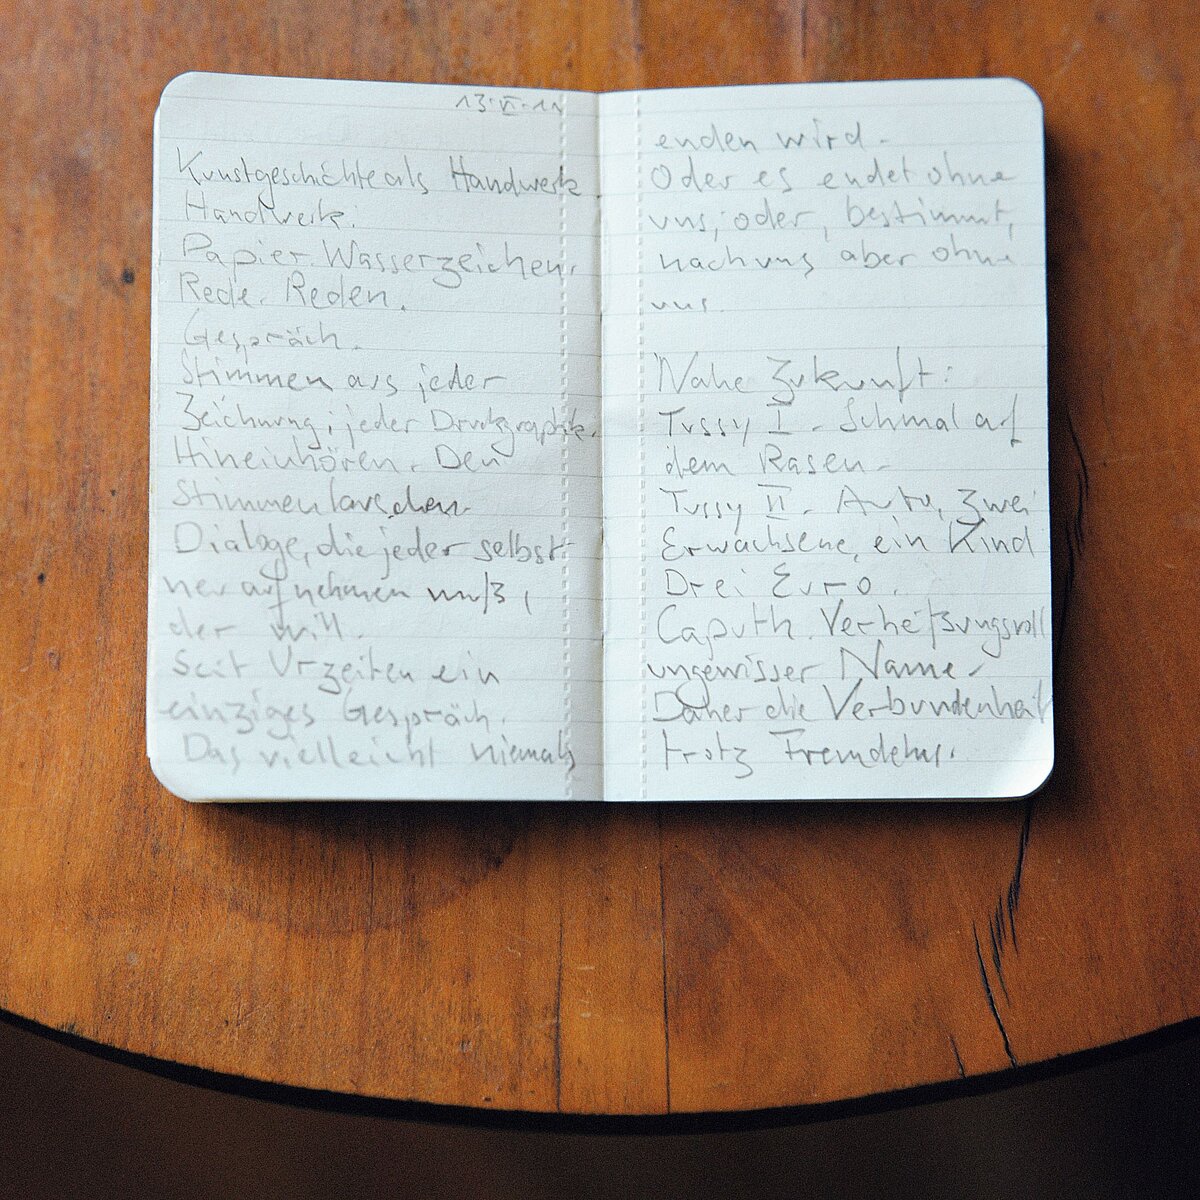 13·VI·11
Kunstgeschichte als Handwerk
Handwerk.
Papier. Wasserzeichen.
Rede. Reden.
Gespräch.
Stimmen aus jeder
Zeichnung; jeder Druckgraphik.
Hineinhören. Den
Stimmen lauschen.
Dialoge, die jeder selbst
neu aufnehmen muß,
der will.
Seit Urzeiten ein
einziges Gespräch.
Das vielleicht niemals
enden wird.
Oder es endet ohne
uns; oder, bestimmt,
nach uns aber ohne
uns.
Nahe Zukunft:
Tussy I. Schmal auf
dem Rasen.
Tussy II. Auto, zwei
Erwachsene, ein Kind
Drei Euro.
Caputh. Verheißungsvoll
ungewisser Name.
Daher die Verbundenheit
trotz Fremdelns.